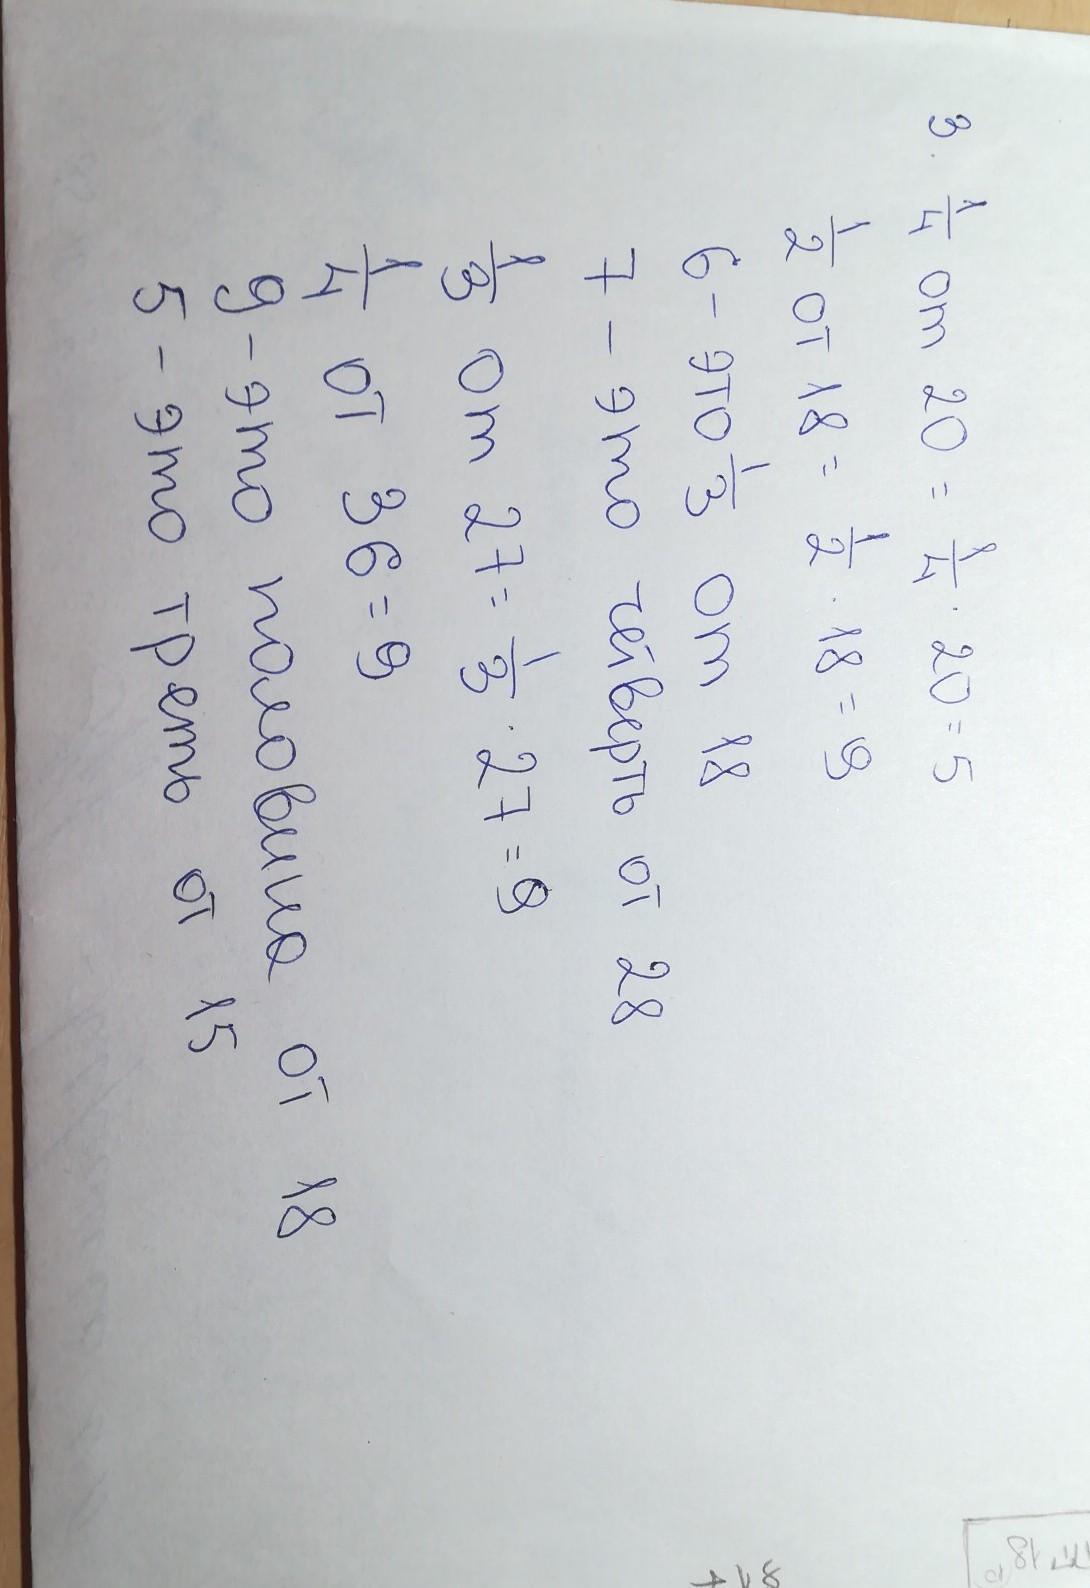 3. 1/4 от 20 = 1/4 · 20 = 5
1/2 от 18 = 1/2 · 18 = 9
6 - это 1/3 от 18
7 - это четверть от 28
1/3 от 27 = 1/3 · 27 = 9
1/4 от 36 = 9
9 - это половина от 18
5 - это треть от 15